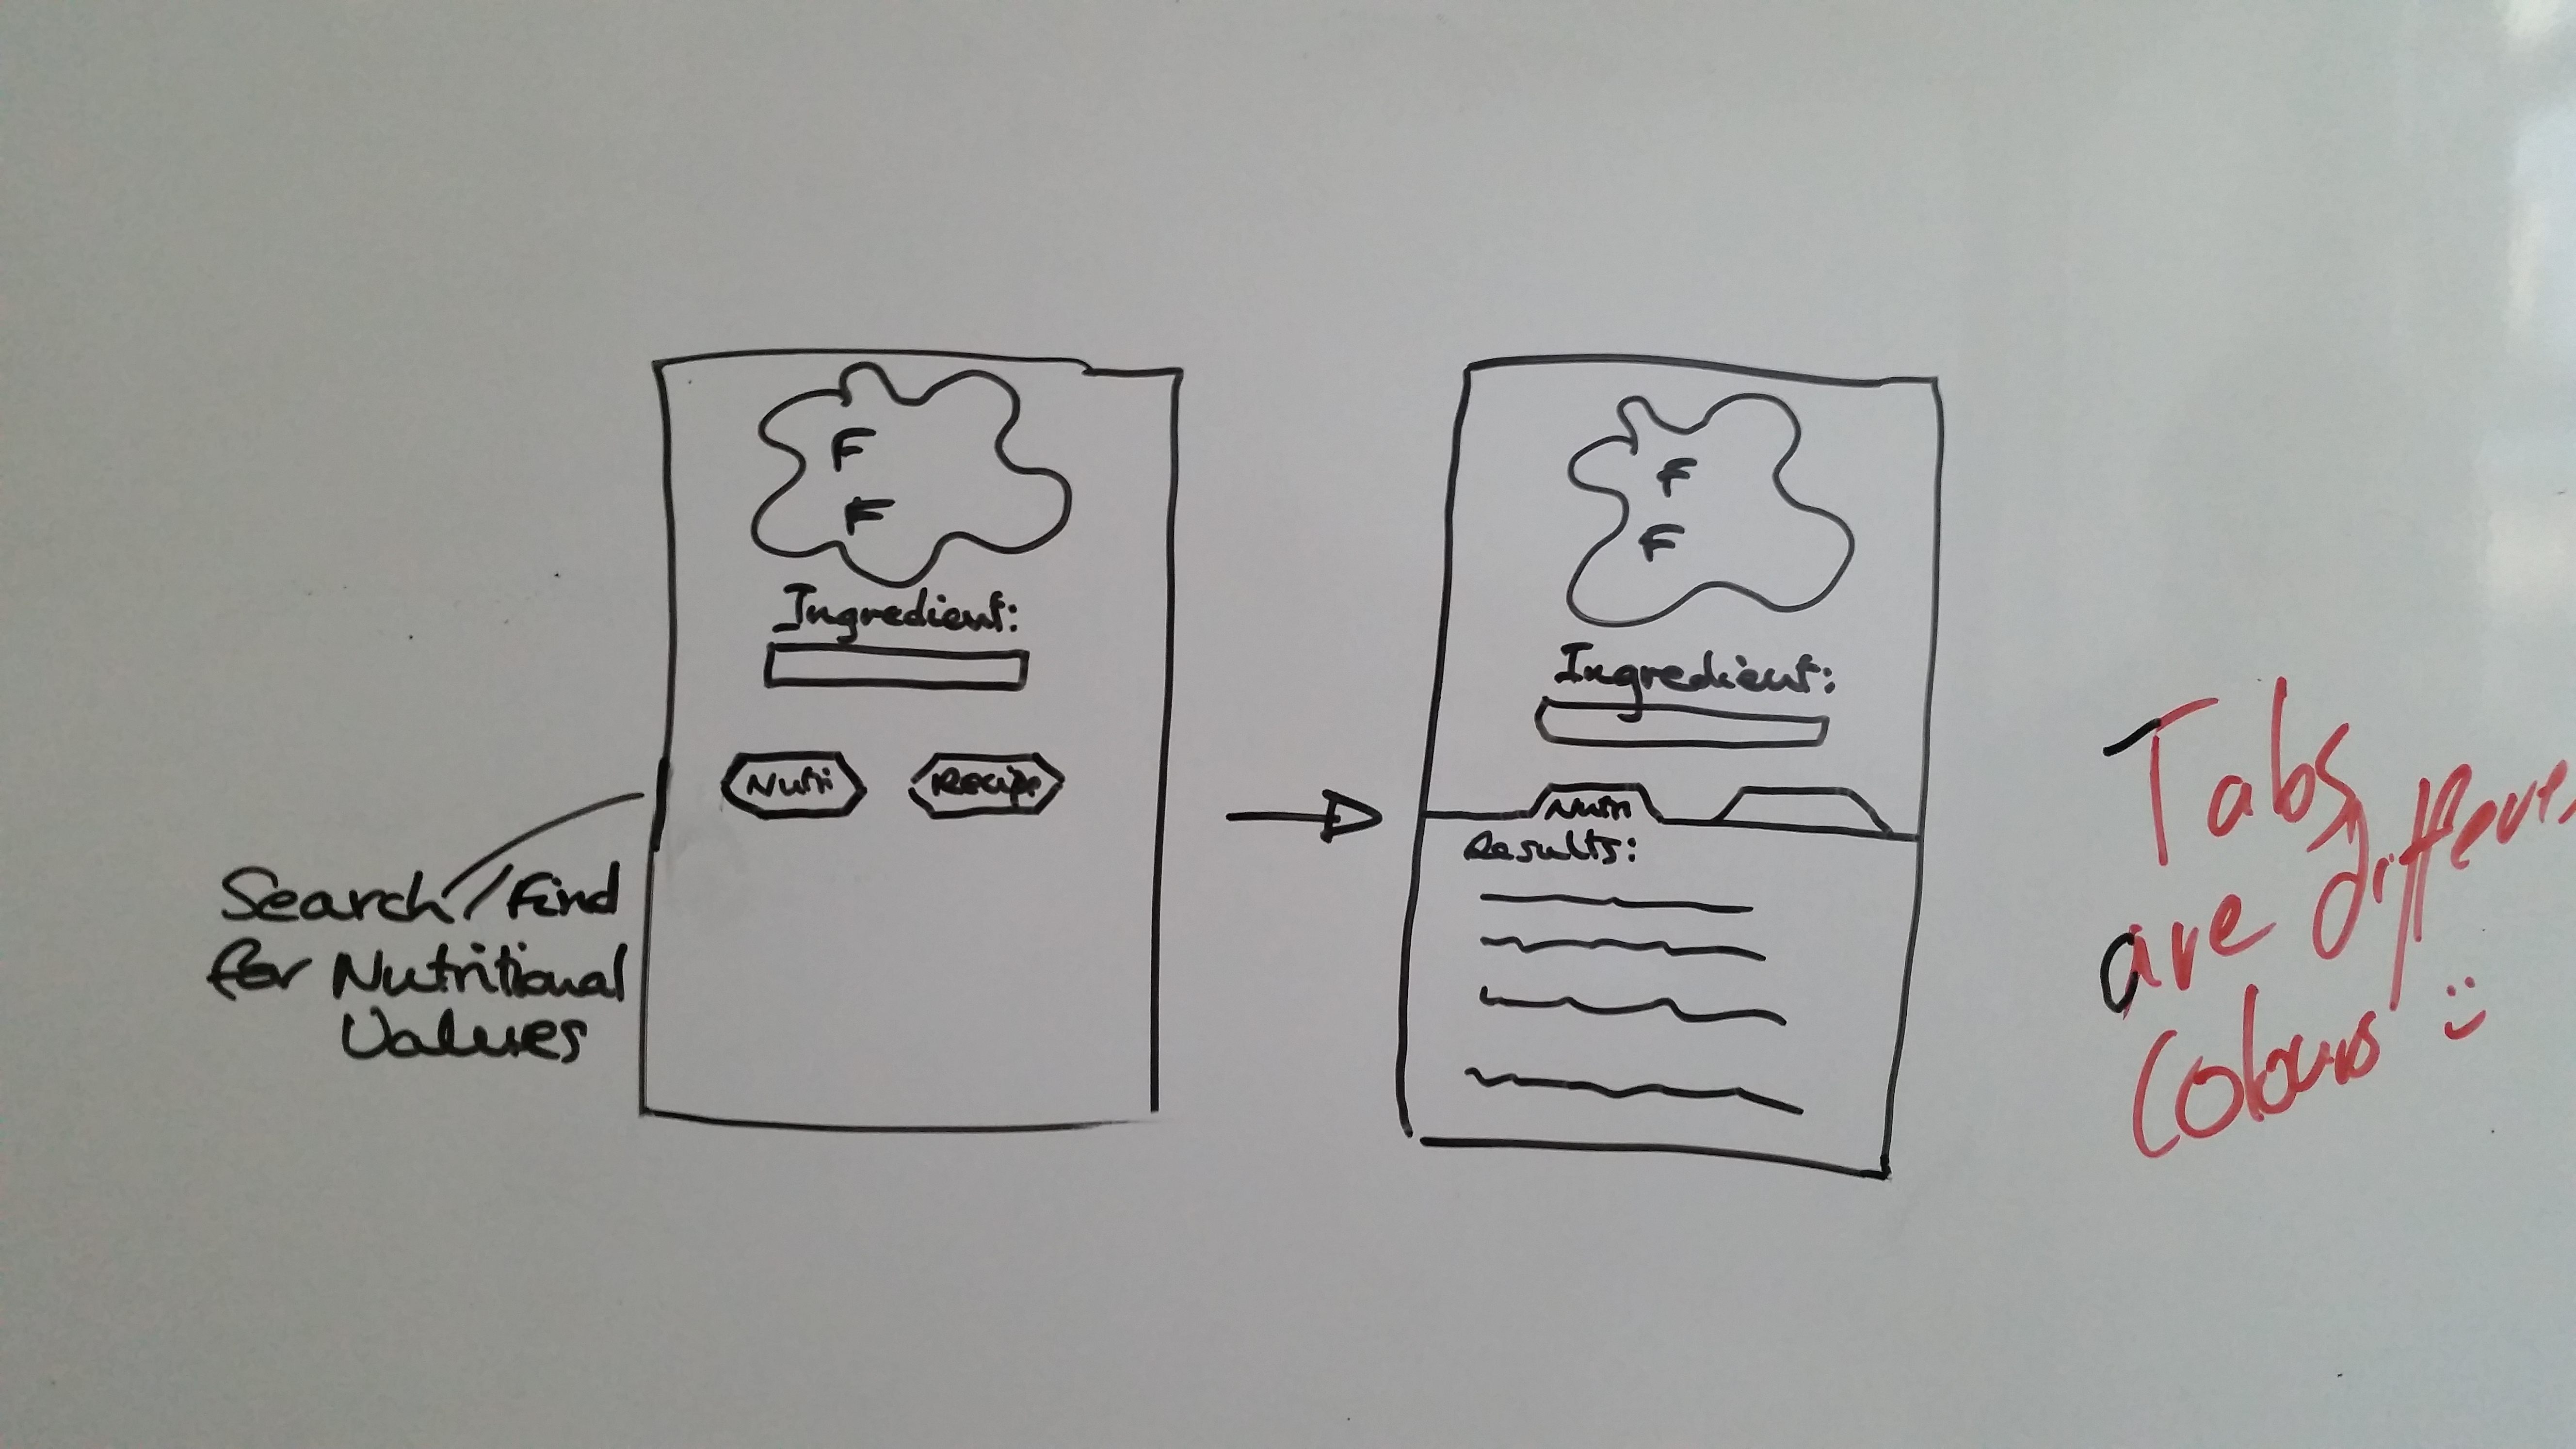 F
F
Ingredient:
Nutri
Recipe
Search/Find
for Nutritional
Values
F
F
Ingredient:
Nutri
Results:
Tabs
are different
Colours :)